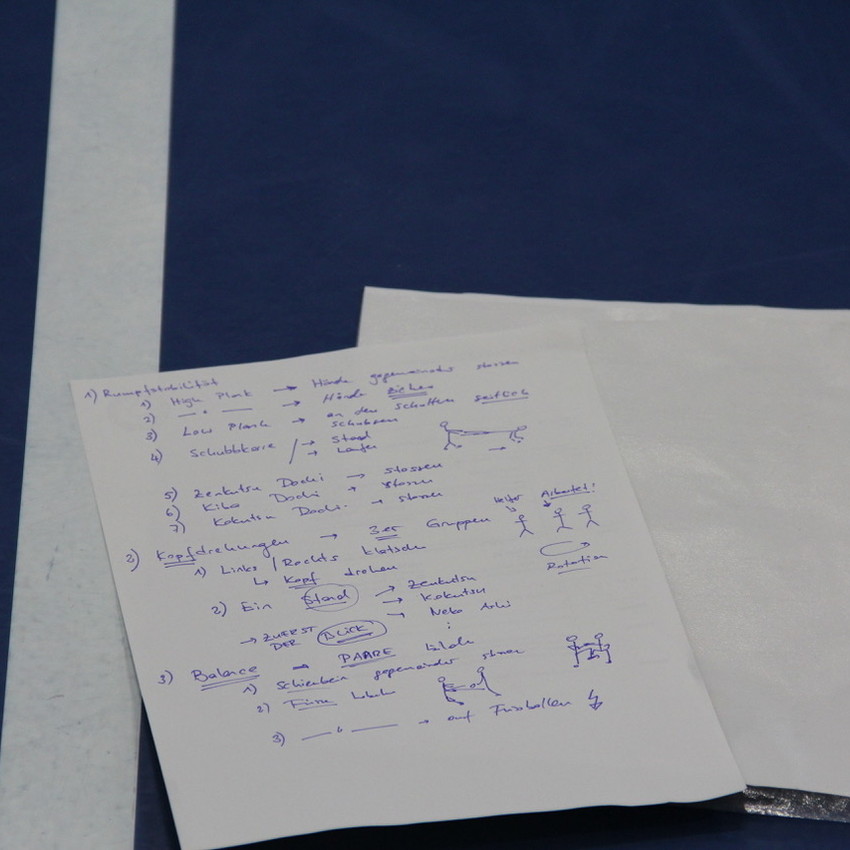 1) Rumpfstabilität
1) High Plank → Hände gegeneinander stossen
2) — " — → Hände ziehen
3) Low Plank → an den Schultern seitlich schubsen
4) Schubkarre → Stand
→ Laufen
5) Zenkutsu Dachi → stossen
6) Kiba Dachi → stossen
7) Kokutsu Dachi → stossen
2) Kopfdrehungen → 3er Gruppen
Helfer Arbeitet!
1) Links / Rechts klatschen
↳ Kopf drehen
Rotation
2) Ein Stand → Zenkutsu
→ Kokutsu
→ Neko Ashi
→ ZUERST DER BLICK
3) Balance → PAARE bilden
1) Schienbein gegeneinander
2) Füsse
3) — " — → auf Fussballen